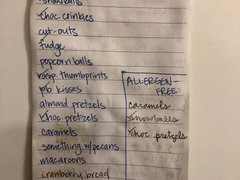 snowballs
choc. crinkles
cut-outs
fudge
popcorn balls
rasp. thumbprints
pb kisses
almond pretzels
choc pretzels
caramels
something w/pecans
macaroons
cranberry bread
ALLERGEN-
FREE:
caramels
snowballs
choc pretzels